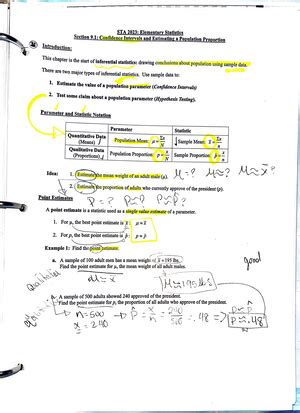 STA 2023: Elementary Statistics
Section 9.1: Confidence Intervals and Estimating a Population Proportion
Introduction:
This chapter is the start of inferential statistics: drawing conclusions about population using sample data.
There are two major types of inferential statistics. Use sample data to:
1. Estimate the value of a population parameter (Confidence Intervals)
2. Test some claim about a population parameter (Hypothesis Testing).
Parameter and Statistic Notation
Parameter Statistic
Quantitative Data (Means) Population Mean: μ = Σx/N Sample Mean: x̄ = Σx/n
Qualitative Data (Proportions) Population Proportion: p = x/N Sample Proportion: p̂ = x/n
Idea: 1. Estimate the mean weight of an adult male (μ). μ=? μ≈? μ≈x̄?
2. Estimate the proportion of adults who currently approve of the president (p).
P=? P≈? P≈p̂?
Point Estimates
A point estimate is a statistic used as a single value estimate of a parameter.
1. For μ, the best point estimate is x̄ : μ≈x̄
2. For p, the best point estimate is p̂ : p≈p̂
Example 1: Find the point estimate.
a. A sample of 100 adult men has a mean weight of x̄=195 lbs. good
Find the point estimate for μ, the mean weight of all adult males.
μ≈x̄ μ≈195 lbs
A sample of 500 adults showed 240 approved of the president.
Find the point estimate for p, the proportion of all adults who approve of the president.
n=500 → p̂ = x/n = 240/500 = .48 => p≈p̂
x=240 p≈.48